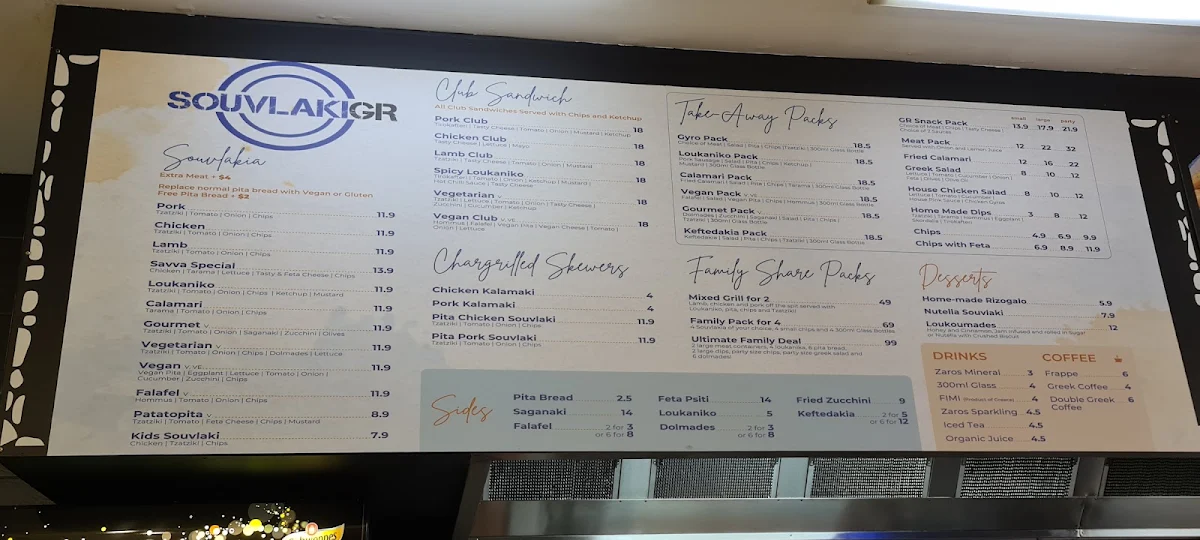 SOUVLAKIGR
Souvlakia
Extra Meat + $4
Replace normal pita bread with Vegan or Gluten
Free Pita Bread + $2
Pork 11.9
Tzatziki | Tomato | Onion | Chips
Chicken 11.9
Tzatziki | Tomato | Onion | Chips
Lamb 11.9
Tzatziki | Tomato | Onion | Chips
Savva Special 13.9
Chicken | Tarama | Lettuce | Tasty & Feta Cheese | Chips
Loukaniko 11.9
Tzatziki | Tomato | Onion | Chips | Ketchup | Mustard
Calamari 11.9
Tarama | Tomato | Onion | Chips
Gourmet V 11.9
Tzatziki | Tomato | Onion | Saganaki | Zucchini | Olives
Vegetarian V 11.9
Tzatziki | Tomato | Onion | Chips | Dolmades | Lettuce
Vegan V, VE 11.9
Vegan Pita | Eggplant | Lettuce | Tomato | Onion |
Cucumber | Zucchini | Chips
Falafel V 11.9
Hommus | Tomato | Onion | Chips
Patatopita V 8.9
Tzatziki | Tomato | Fete Cheese | Chips | Mustard
Kids Souvlaki 7.9
Chicken | Tzatziki | Chips
Club Sandwich
All Club Sandwiches Served with Chips and Ketchup
Pork Club 18
Tirokafteri | Tasty Cheese | Tomato | Onion | Mustard | Ketchup
Chicken Club 18
Tasty Cheese | Lettuce | Mayo
Lamb Club 18
Tzatziki | Tasty Cheese | Tomato | Onion | Mustard
Spicy Loukaniko 18
Tirokafteri | Tomato | Onion | Ketchup | Mustard |
Hot Chili Sauce | Tasty Cheese
Vegetarian V 18
Tzatziki | Lettuce | Tomato | Onion | Tasty Cheese |
Zucchini | Cucumber | Ketchup
Vegan Club V, VE 18
Hommus | Falafel | Vegan Pita | Vegan Cheese | Tomato |
Onion | Lettuce
Chargrilled Skewers
Chicken Kalamaki 4
Pork Kalamaki 4
Pita Chicken Souvlaki 11.9
Tzatziki | Tomato | Onion | Chips
Pita Pork Souvlaki 11.9
Tzatziki | Tomato | Onion | Chips
Take-Away Packs
Gyro Pack 18.5
Choice of Meat | Salad | Pita | Chips | Tzatziki | 300ml Glass Bottle
Loukaniko Pack 18.5
Pork Sausage | Salad | Pita | Chips | Ketchup |
Mustard | 300ml Glass Bottle
Calamari Pack 18.5
Fried Calamari | Salad | Pita | Chips | Tarama | 300ml Glass Bottle
Vegan Pack V, VE 18.5
Falafel | Salad | Vegan Pita | Chips | Hommus | 300ml Glass Bottle
Gourmet Pack V 18.5
Dolmades | Zucchini | Saganaki | Salad | Pita | Chips |
Tzatziki | 300ml Glass Bottle
Keftedakia Pack 18.5
Keftedakia | Salad | Pita | Chips | Tzatziki | 300ml Glass Bottle
small large party
GR Snack Pack 13.9 17.9 21.9
Choice of Meat | Chips | Tasty Cheese
Choice of 2 Sauces
Meat Pack 12 22 32
Served with Onion and Lemon Juice
Fried Calamari 12 16 22
Greek Salad 8 10 12
Lettuce | Tomato | Cucumber | Onion |
Feta | Olives
House Chicken Salad 8 10 12
Lettuce | Tomato | Cucumber |
House Pork Sauce | Chicken Gyros
Home Made Dips 3 8 12
Tzatziki | Tarama | Hommus | Eggplant |
Chips 4.9 6.9 9.9
Chips with Feta 6.9 8.9 11.9
Family Share Packs
Mixed Grill for 2 49
Lamb, chicken and pork off the spit served with
Loukaniko, pita, chips and Tzatziki
Family Pack for 4 69
4 Souvlakia of your choice, 4 small chips and 4 300ml Glass Bottles
Ultimate Family Deal 99
2 large meat containers, 4 loukanika, 6 pita bread,
2 large dips, party size chips, party size greek salad and
6 dolmades
Desserts
Home-made Rizogalo 5.9
Nutella Souvlaki 7.9
Loukoumades 12
Honey and Cinnamon, Jam infused and rolled in Sugar
or Nutella with Crushed Biscuit
Sides
Pita Bread 2.5
Saganaki 14
Falafel 2 for 3
or 6 for 8
Feta Psiti 14
Loukaniko 5
Dolmades 2 for 3
or 6 for 8
Fried Zucchini 9
Keftedakia 2 for 5
or 6 for 12
DRINKS
Zaros Mineral 3
300ml Glass 4
FIMI (Product of Greece) 4
Zaros Sparkling 4.5
Iced Tea 4.5
Organic Juice 4.5
COFFEE
Frappe 6
Greek Coffee 4
Double Greek 6
Coffee